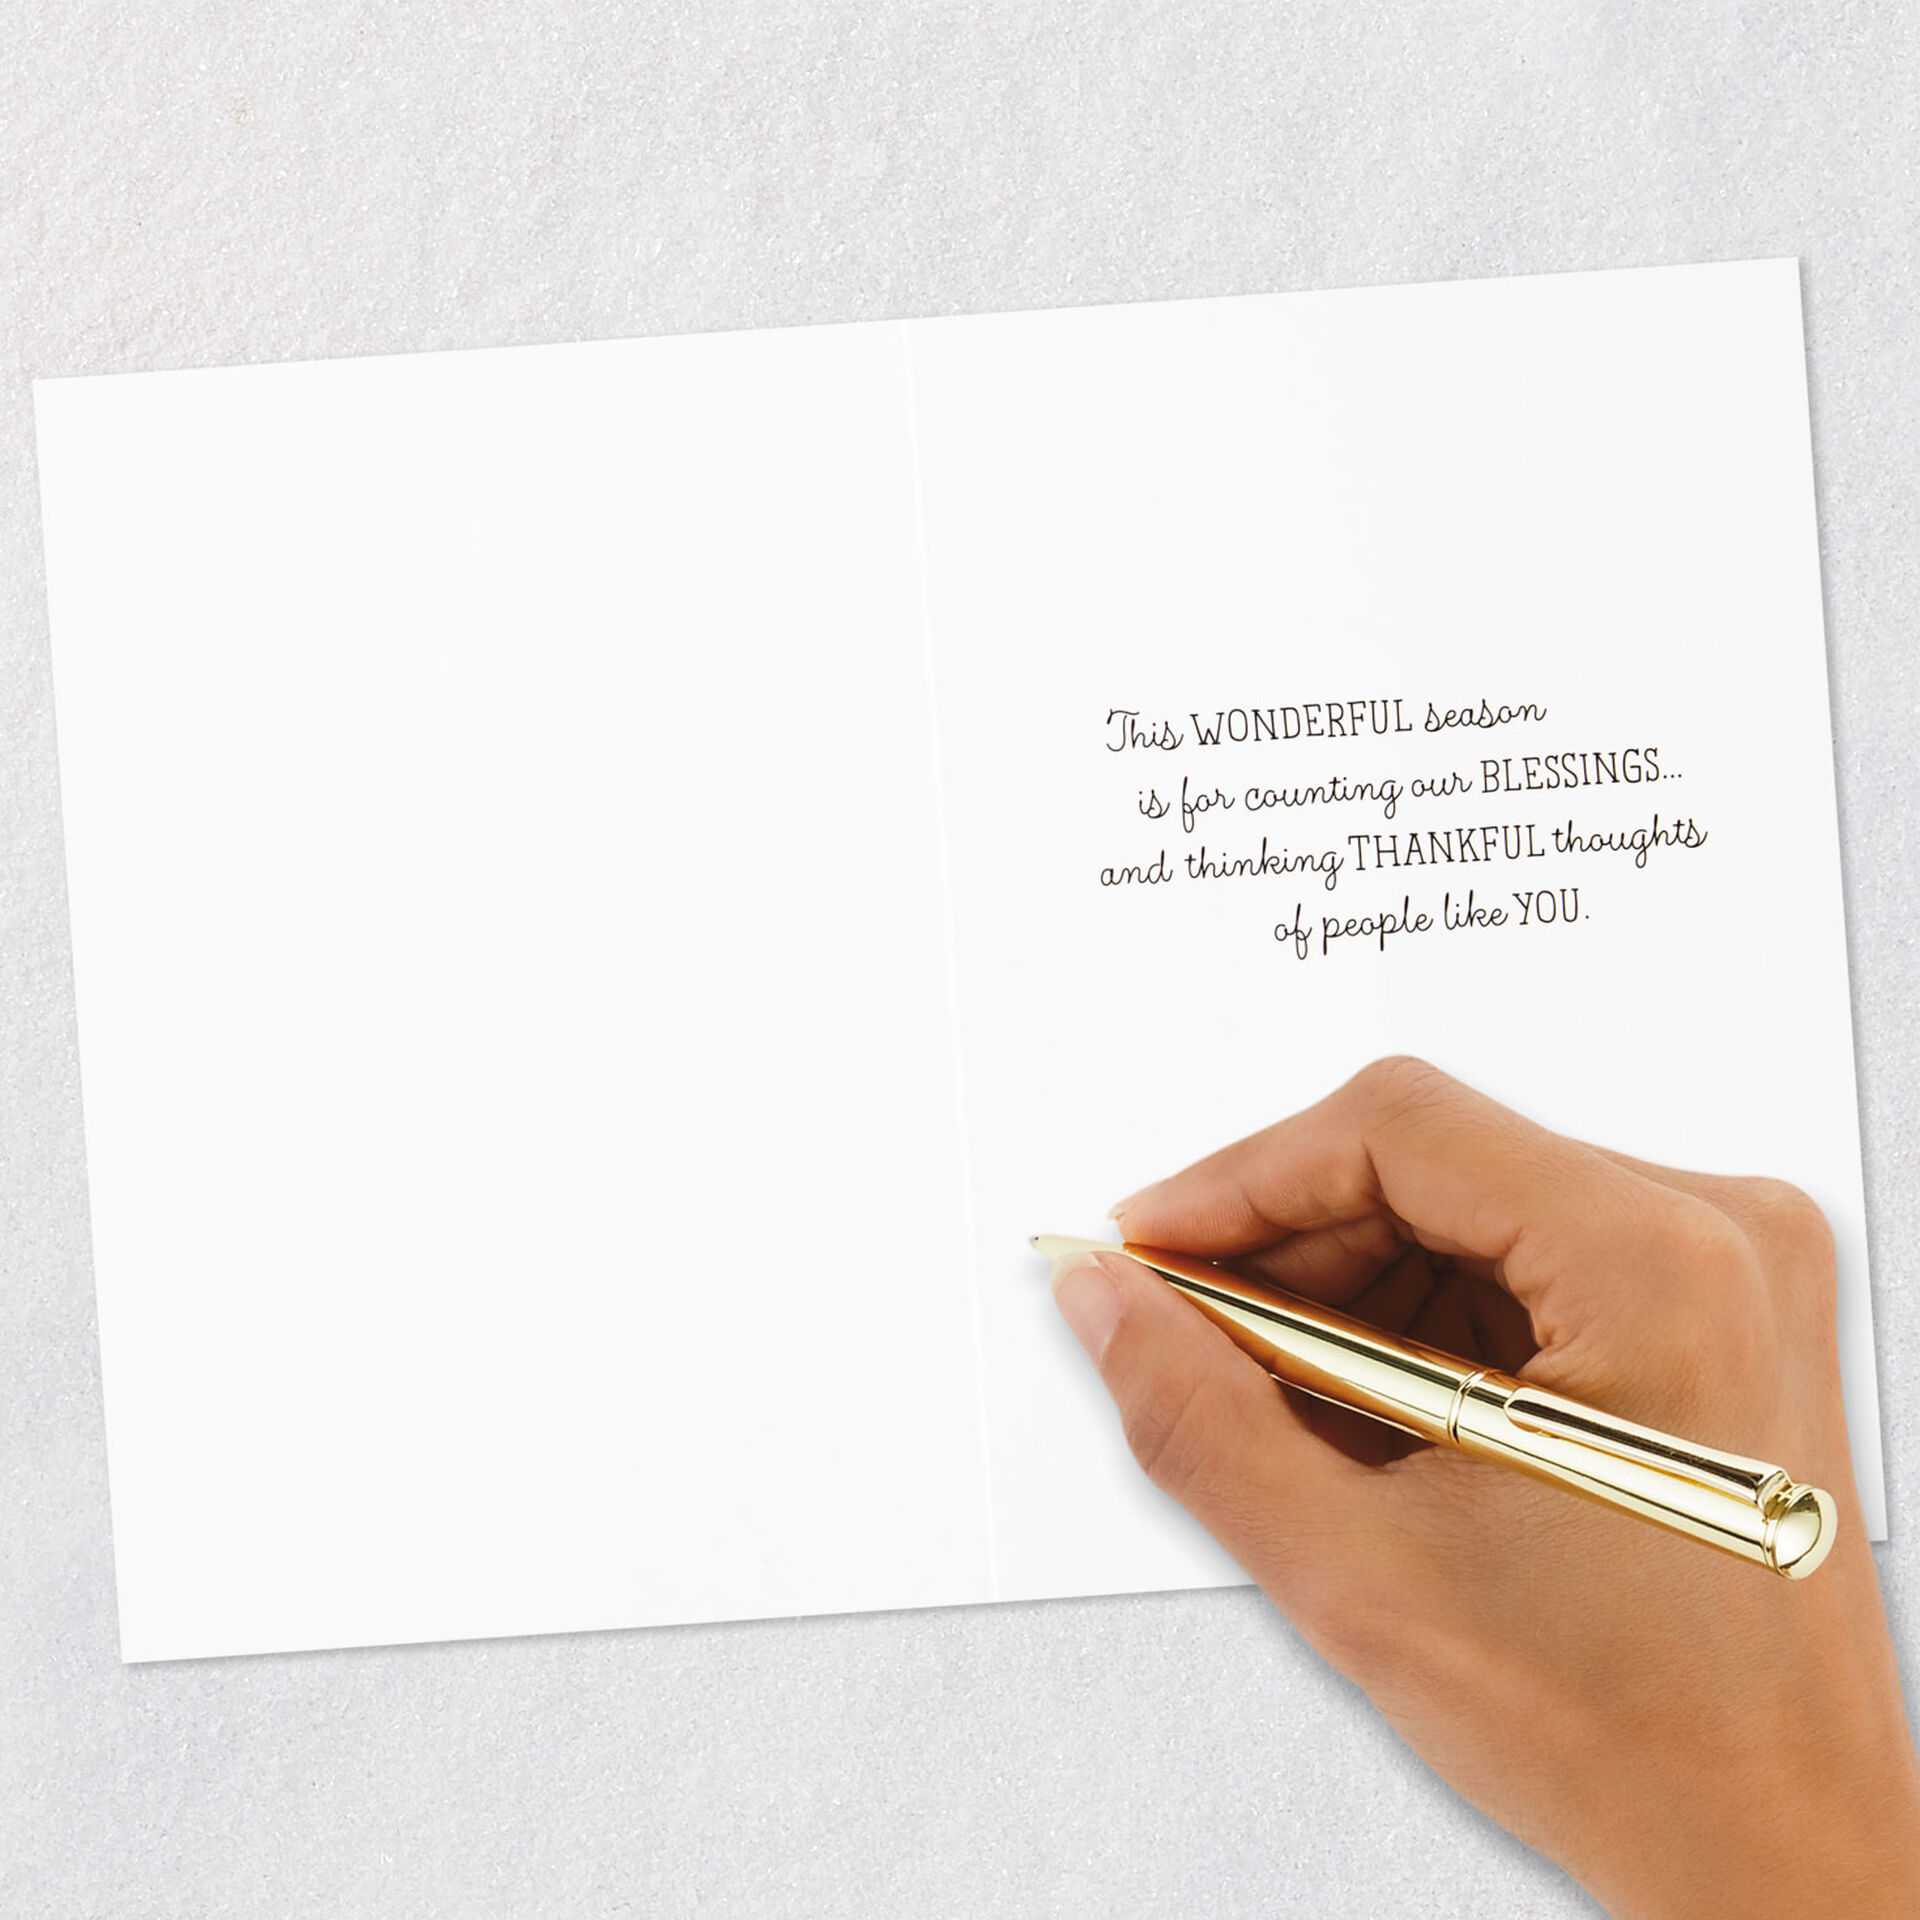 This WONDERFUL season
is for counting our BLESSINGS...
and thinking THANKFUL thoughts
of people like YOU.